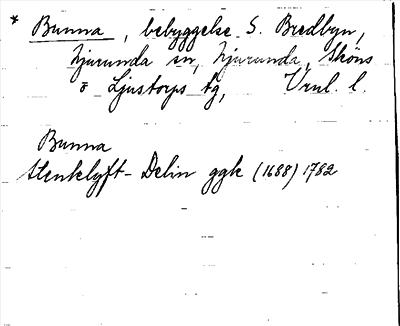 * Bunna, bebyggelse S. Bredbyn,
Njurunda sn, Njurunda, Sköns
o Ljustorps tg, Vnl. l.
Bunna
Stenklyft - Delin ggk (1688) 1782